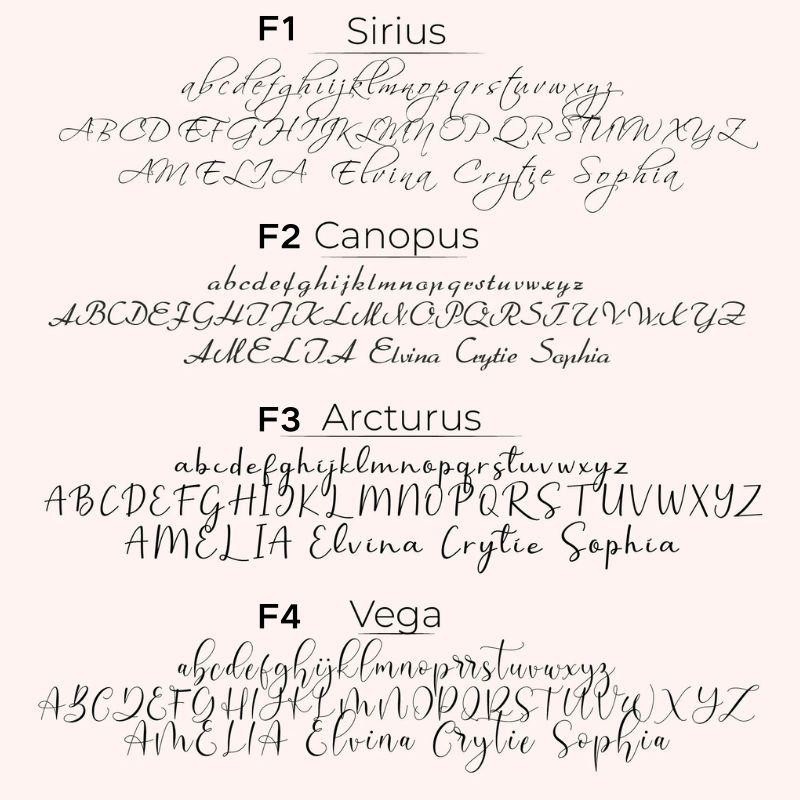 F1 Sirius
abcdefghijklmnopqrstuvwxyz
ABCDEFGHIJKLMNOPQRSTUVWXYZ
AMELIA Elvina Crytie Sophia
F2 Canopus
abcdefghijklmnopqrstuvwxyz
ABCDEFGHIJKLMNOPQRSTUVWXYZ
AMELIA Elvina Crytie Sophia
F3 Arcturus
abcdefghijklmnopqrstuvwxyz
ABCDEFGHIJKLMNOPQRSTUVWXYZ
AMELIA Elvina Crytie Sophia
F4 Vega
abcdefghijklmnoprrstuvwxyz
ABCDEFGHIJKLMNOPQRSTUVWXYZ
AMELIA Elvina Crytie Sophia